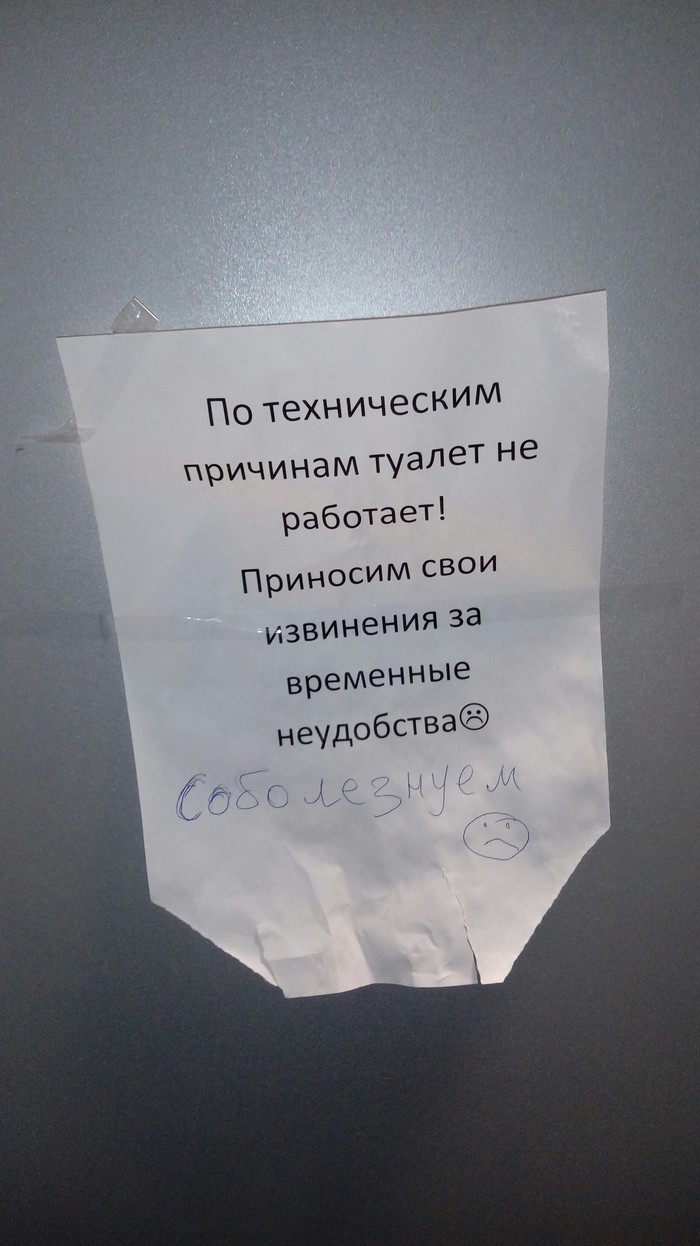 По техническим
причинам туалет не
работает!
Приносим свои
извинения за
временные
неудобства☹
Соболезнуем